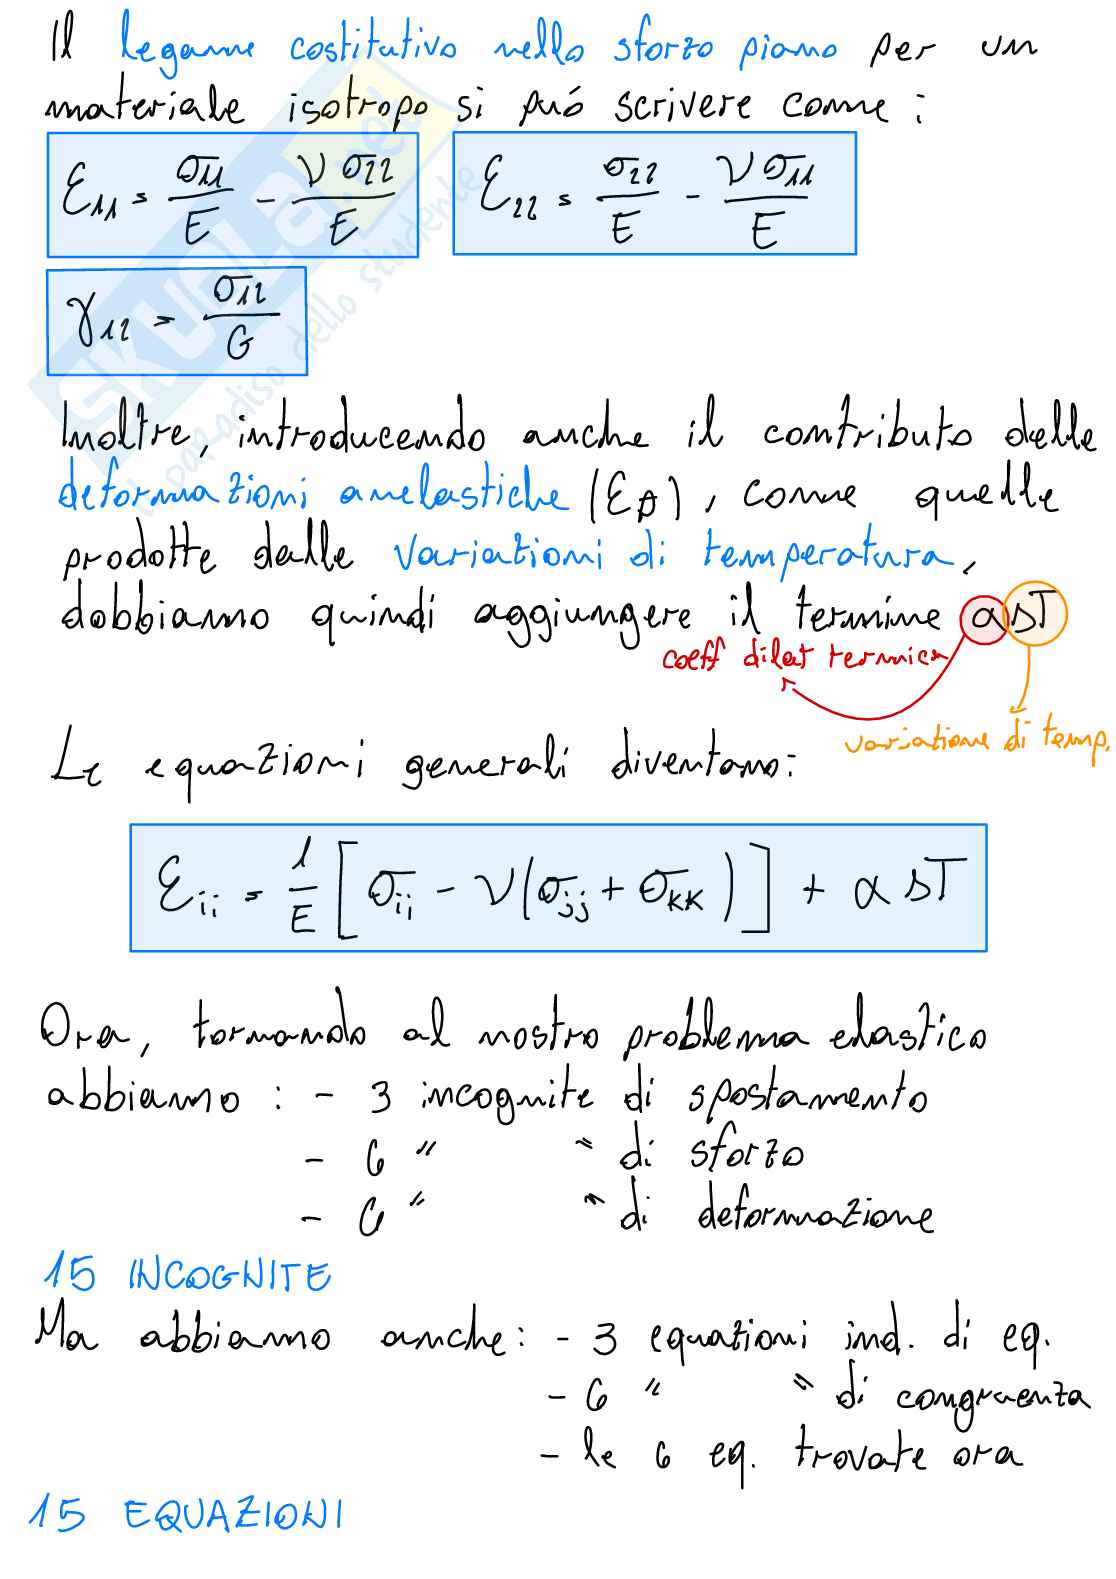 Il legame costitutivo nello sforzo piano per un
materiale isotropo si può scrivere come:
ε₁₁ = σ₁₁/E - ν σ₂₂/E   ε₂₂ = σ₂₂/E - ν σ₁₁/E
γ₁₂ = σ₁₂/G
Inoltre, introducendo anche il contributo delle
deformazioni anelastiche (ε_A), come quelle
prodotte dalle variazioni di temperatura,
dobbiamo quindi aggiungere il termine αΔT
coeff dilat termica
variazione di temp.
Le equazioni generali diventano:
ε_ii = 1/E [σ_ii - ν(σ_jj + σ_kk)] + α ΔT
Ora, tornando al nostro problema elastico
abbiamo: - 3 incognite di spostamento
- 6 " " di sforzo
- 6 " " di deformazione
15 INCOGNITE
Ma abbiamo anche: - 3 equazioni ind. di eq.
- 6 " " di congruenza
- le 6 eq. trovate ora
15 EQUAZIONI
SKUOLA.net
il paradiso dello studente